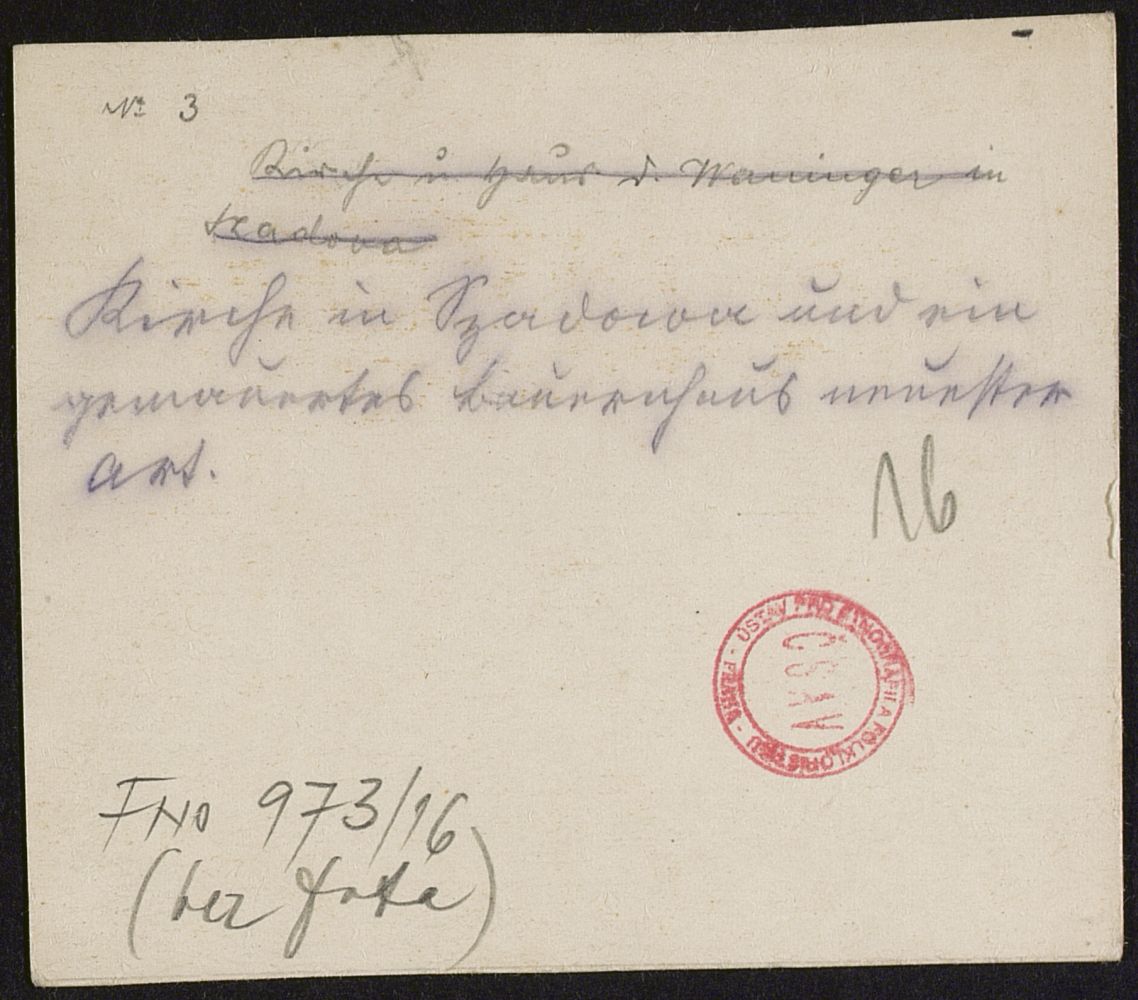 № 3
Kirche u Haus d. Waninger in
Szadova
Kirche in Szadowa und ein
gemauertes Bauernhaus neuester
Art.
16
ÚSTAV PRO ETNOGRAFII A FOLKLORISTIKU - PRAHA -
ČSAV
FNO 973/16
(bez fota)